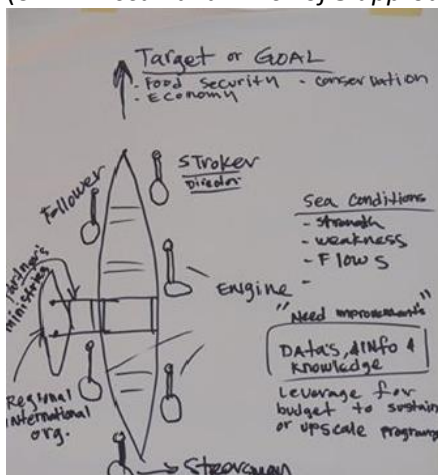 Target or GOAL
- Food Security - conservation
- Economy
Stroker
Director
Follower
Sea Conditions
- strength
- weakness
- Flows
-
Engine
Partner's
ministries
"Need improvements"
Data's, & Info &
Knowledge
Leverage for
budget to sustain
or upscale programs
Regional
international
org.